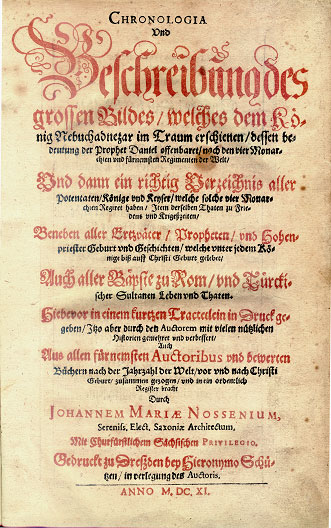 CHRONOLOGIA
Und
Beschreibung des
grossen Bildes / welches dem Kö-
nig Nebuchadnezar im Traum erschienen / dessen be-
deutung der Prophet Daniel offenbaret / nach den vier Monar-
chien und fürnemsten Regimenten der Welt /
Und dann ein richtig Verzeichnis aller
Potentaten / Könige und Keyser / welche solche vier Monar-
chien Regiret haben / Item derselben Thaten zu Frie-
dens und Kriegßzeiten /
Beneben aller Ertzväter / Propheten / und Hohen-
priester Geburt und Geschichten / welche unter jedem Kö-
nige biß auff Christi Geburt gelebet /
Auch aller Bäpste zu Rom / und Türcki-
scher Sultanen Leben und Thaten.
Hiebevor in einem kurtzen Tractetlein in Druck ge-
geben / Itzo aber durch den Auctorem mit vielen nützlichen
Historien gemehret und verbessert /
Auch
Aus allen fürnemsten Auctoribus und bewerten
Büchern nach der Jahrzahl der Welt / vor und nach Christi
Geburt / zusammen gezogen / und in ein ordenlich
Register bracht
Durch
JOHANNEM MARIÆ NOSSENIUM,
Sereniss. Elect. Saxoniæ Architectum,
Mit Churfürstlichem Sächsischen PRIVILEGIO.
Gedruckt zu Dreßden bey Hieronymo Schü-
tzen / in verlegung des Auctoris.
ANNO M. DC. XI.